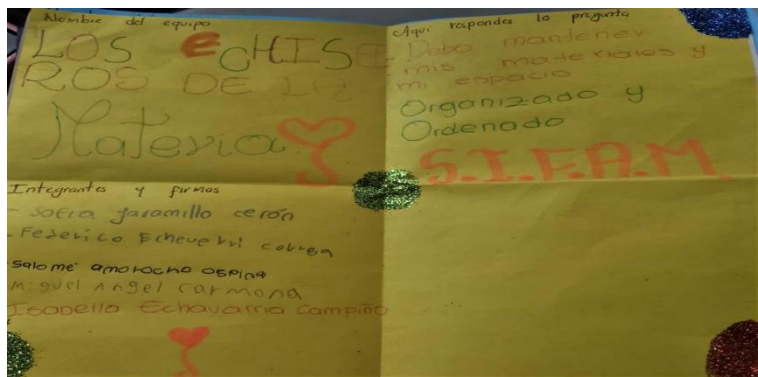 Nombre del equipo
LOS eCHISE
ROS DE LA
Materia
Integrantes y firmas
- Sofia jaramillo cerón
- Federico Echeverri correa
Salome amorocho ospina
Miguel Angel carmona
Isabella Echavarria campiño
Aqui respondes la pregunta
- Debo mantener
mis materiales y
mi espacio
Organizado y
Ordenado
S.I.F.A.M.